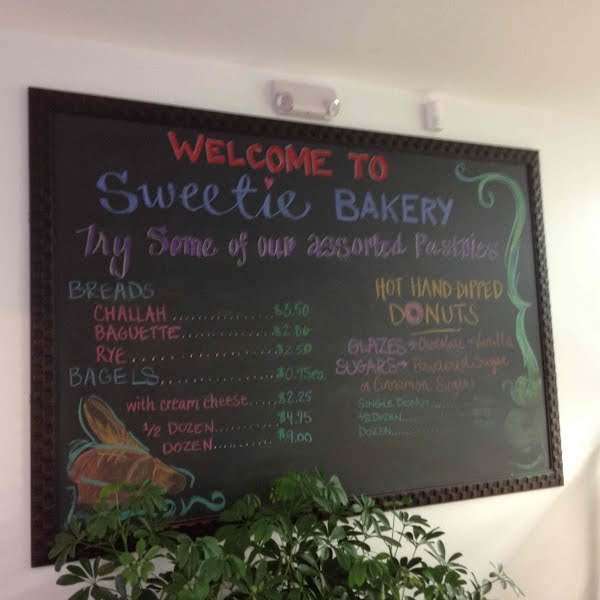 WELCOME TO
Sweetie BAKERY
Try Some of our assorted Pastries
BREADS
CHALLAH ............ $3.50
BAGUETTE............
RYE................ $2.50
BAGELS............. $0.95ea
with cream cheese.... $2.25
1/2 DOZEN.......... $4.75
DOZEN............ $9.00
HOT HAND-DIPPED
DONUTS
GLAZES → Chocolate or Vanilla
SUGARS → Powdered Sugar
or Cinnamon Sugar
SINGLE DONUT.......
1/2 DOZEN............
DOZEN..............